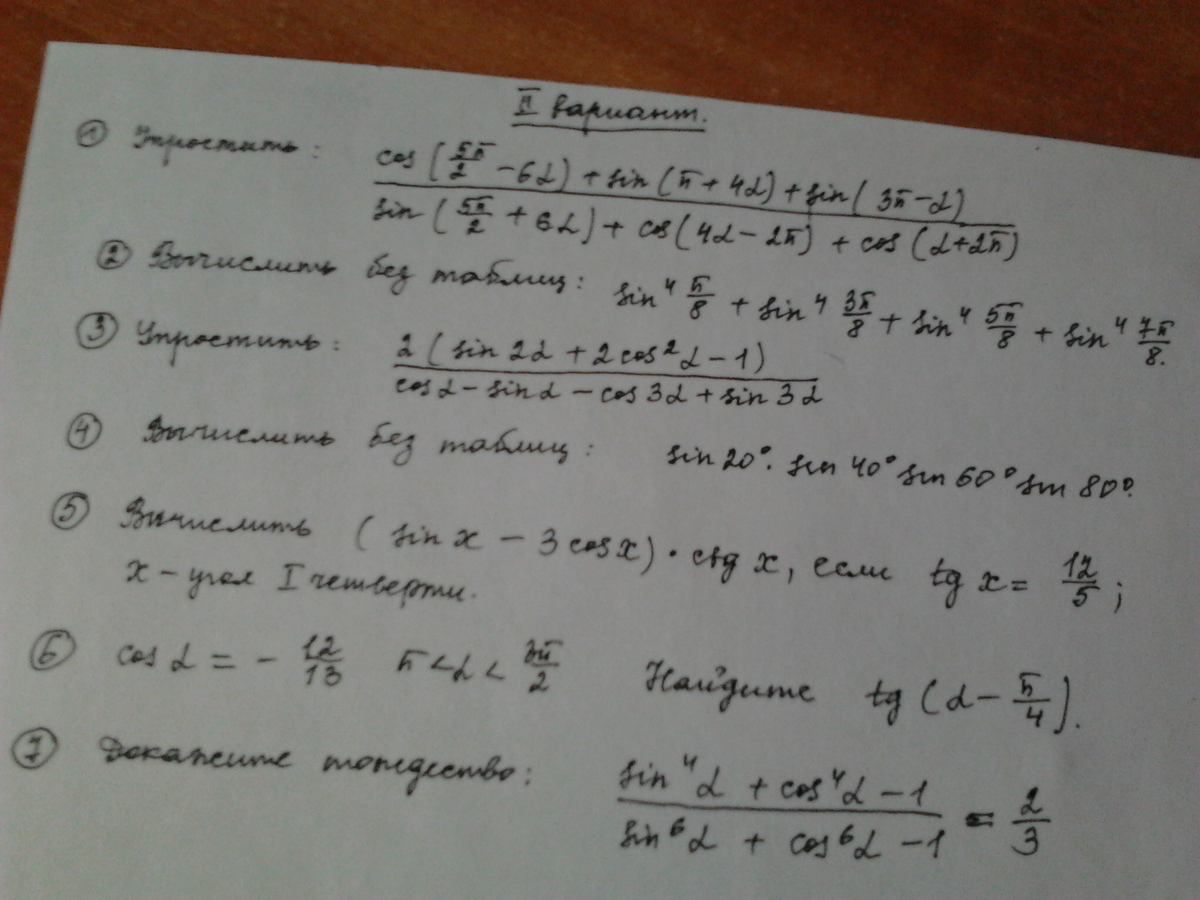 II вариант.
① Упростить: (cos(5π/2 - 6α) + sin(π + 4α) + sin(3π - α)) / (sin(5π/2 + 6α) + cos(4α - 2π) + cos(α + 2π))
② Вычислить без таблиц: sin⁴ π/8 + sin⁴ 3π/8 + sin⁴ 5π/8 + sin⁴ 7π/8.
③ Упростить: 2(sin 2α + 2cos²α - 1) / (cos α - sin α - cos 3α + sin 3α)
④ Вычислить без таблиц: sin 20° · sin 40° sin 60° sin 80°.
⑤ Вычислить (sin x - 3 cos x) · ctg x, если tg x = 12/5;
x - угол I четверти.
⑥ cos α = - 12/13 π < α < 3π/2 Найдите tg(α - π/4).
⑦ Докажите тождество: (sin⁴α + cos⁴α - 1) / (sin⁶α + cos⁶α - 1) = 2/3